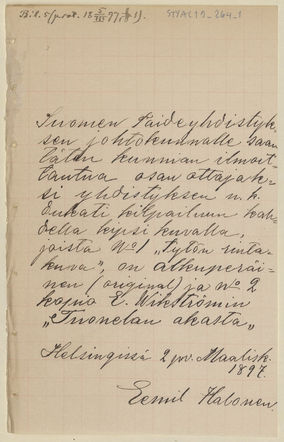 Bil. 5 (prot. 18 5/III 97 § 1).
STYAL19_264_1
Suomen Taideyhdistyk-
sen johtokunnalle saan
täten kunnian ilmoit-
tautua osan ottajak-
si yhdistyksen n.k.
Dukati kilpailuun kah-
della kipsi kuvalla,
joista No 1 „tytön rinta-
kuva", on alkuperäi-
nen (original) ja No 2
kopio E. Wikströmin
„Tuonelan akasta„
Helsingissä 2 pv. Maalisk.
1897.
Eemil Halonen.